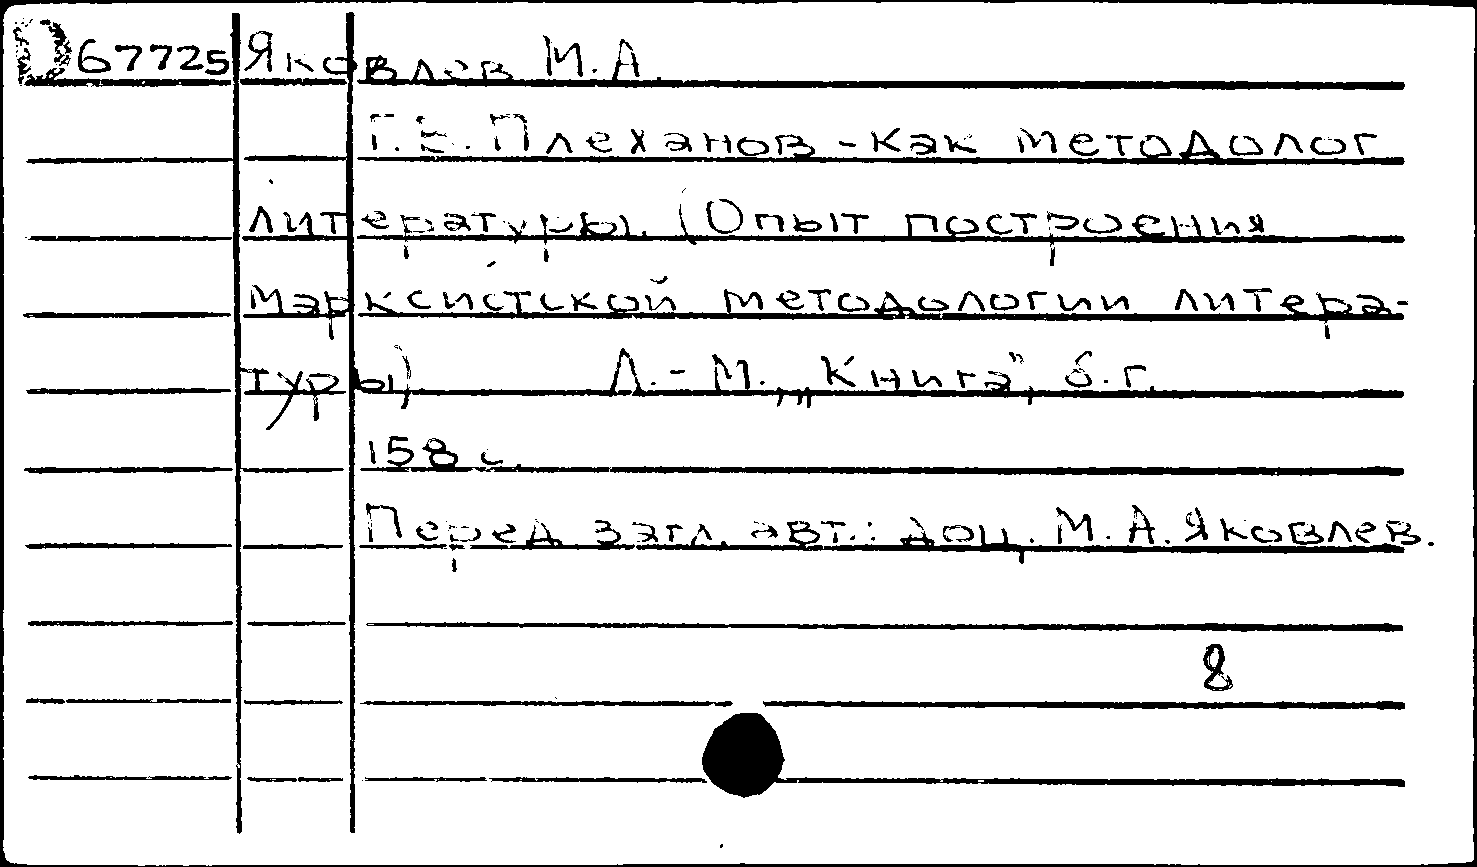 D67725 Яковлев М.А.
Г.В. Плеханов - как методолог
литературы. (Опыт построения
марксистской методологии литера-
туры). Л.-М., „Книга", б.г.
158 с.
Перед загл. авт.: доц. М.А. Яковлев.
8